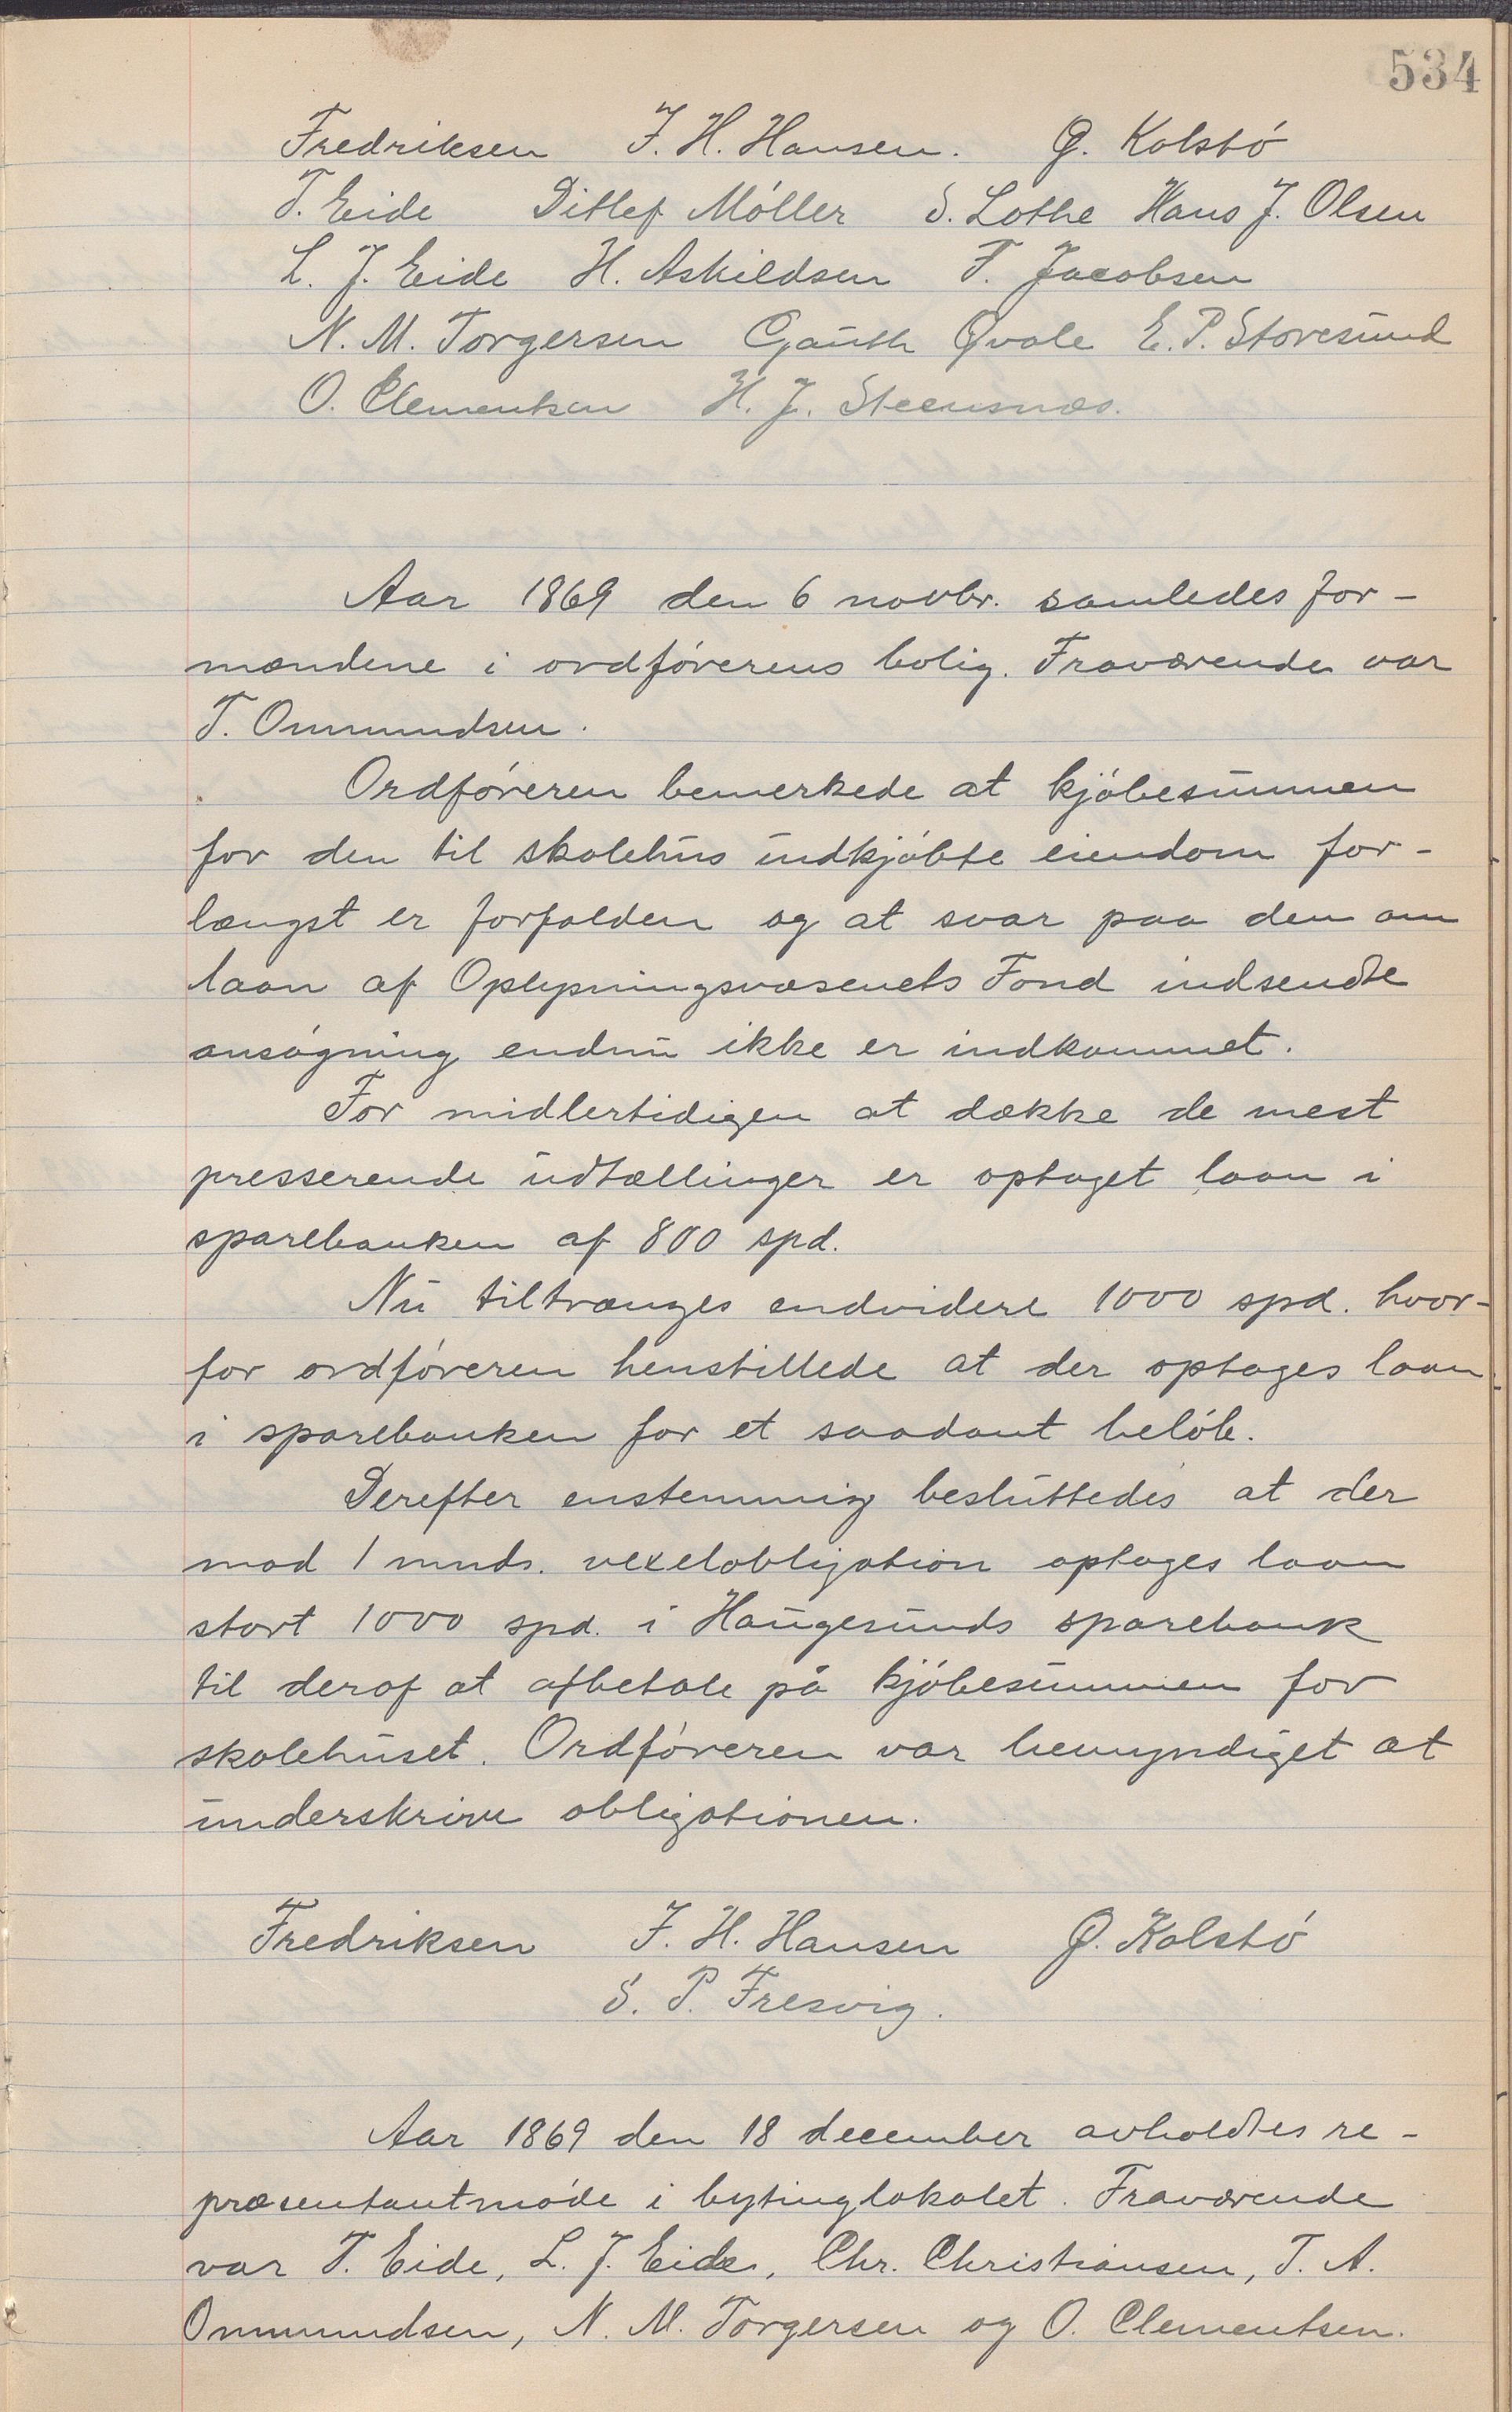 534
Fredriksen J. H. Hansen. G. Kolstø
T. Eide Ditlef Møller S. Lothe Hans J. Olsen
L. J. Eide H. Askildsen F. Jacobsen
N. M. Torgersen Gauth Qvale E. P. Storesund
O. Clementsen H. J. Steensnæs.
Aar 1869 den 6 novbr. samledes for-
mændene i ordførerens bolig. Fraværende var
T. Ommundsen.
Ordføreren bemerkede at kjøbesummen
for den til skolehus indkjøbte eiendom for-
længst er forfalden og at svar paa den om
laan af Oplysningsvæsenets Fond indsendte
ansøgning endnu ikke er indkommet.
For midlertidigen at dække de mest
presserende udtællinger er optaget laan i
sparebanken af 800 spd.
Nu tiltrænges endvidere 1000 spd. hvor-
for ordføreren henstillede at der optages laan
i sparebanken for et saadant beløb.
Derefter enstemmig besluttedes at der
mod 1 mnds. vexelobligation optages laan
stort 1000 spd. i Haugesunds sparebank
til deraf at afbetale på kjøbesummen for
skolehuset. Ordføreren var bemyndiget at
underskrive obligationen.
Fredriksen J. H. Hansen G. Kolstø
S. P. Fresvig.
Aar 1869 den 18 december avholdtes re-
præsentantmøde i bytinglokalet. Fraværende
var T. Eide, L. J. Eide, Chr. Christiansen, T. A.
Ommundsen, N. M. Torgersen og O. Clementsen.